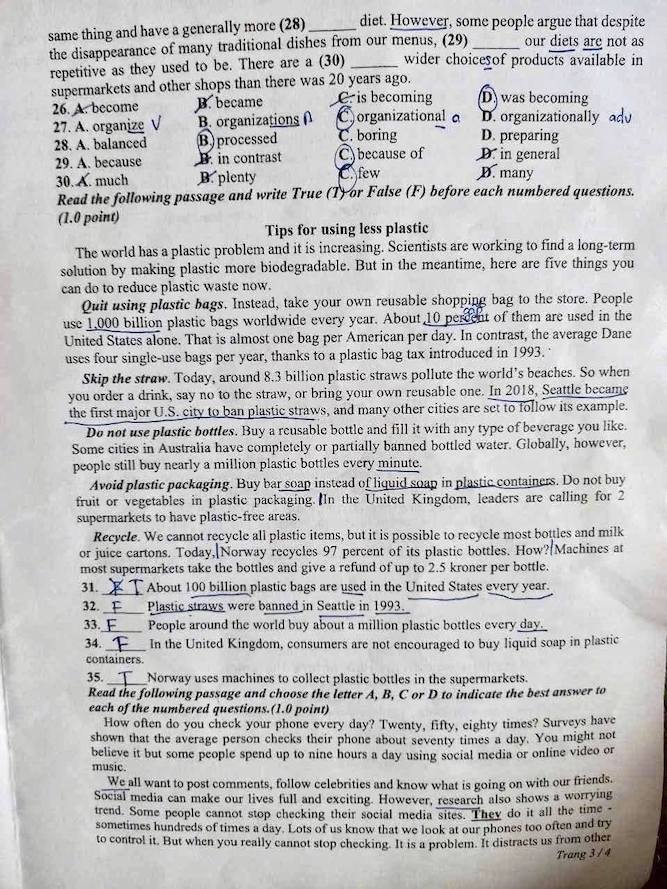 same thing and have a generally more (28) ______ diet. However, some people argue that despite
the disappearance of many traditional dishes from our menus, (29) ______ our diets are not as
repetitive as they used to be. There are a (30) ______ wider choicesof products available in
supermarkets and other shops than there was 20 years ago.
26. A. become B. became C. is becoming D. was becoming
27. A. organize V B. organizations n C. organizational a D. organizationally adv
28. A. balanced B. processed C. boring D. preparing
29. A. because B. in contrast C. because of D. in general
30. A. much B. plenty C. few D. many
Read the following passage and write True (T) or False (F) before each numbered questions.
(1.0 point)
Tips for using less plastic
The world has a plastic problem and it is increasing. Scientists are working to find a long-term
solution by making plastic more biodegradable. But in the meantime, here are five things you
can do to reduce plastic waste now.
Quit using plastic bags. Instead, take your own reusable shopping bag to the store. People
use 1,000 billion plastic bags worldwide every year. About 10 percent of them are used in the
United States alone. That is almost one bag per American per day. In contrast, the average Dane
uses four single-use bags per year, thanks to a plastic bag tax introduced in 1993.
Skip the straw. Today, around 8.3 billion plastic straws pollute the world's beaches. So when
you order a drink, say no to the straw, or bring your own reusable one. In 2018, Seattle became
the first major U.S. city to ban plastic straws, and many other cities are set to follow its example.
Do not use plastic bottles. Buy a reusable bottle and fill it with any type of beverage you like.
Some cities in Australia have completely or partially banned bottled water. Globally, however,
people still buy nearly a million plastic bottles every minute.
Avoid plastic packaging. Buy bar soap instead of liquid soap in plastic containers. Do not buy
fruit or vegetables in plastic packaging. In the United Kingdom, leaders are calling for 2
supermarkets to have plastic-free areas.
Recycle. We cannot recycle all plastic items, but it is possible to recycle most bottles and milk
or juice cartons. Today, Norway recycles 97 percent of its plastic bottles. How? Machines at
most supermarkets take the bottles and give a refund of up to 2.5 kroner per bottle.
31. T About 100 billion plastic bags are used in the United States every year.
32. F Plastic straws were banned in Seattle in 1993.
33. F People around the world buy about a million plastic bottles every day.
34. F In the United Kingdom, consumers are not encouraged to buy liquid soap in plastic
containers.
35. T Norway uses machines to collect plastic bottles in the supermarkets.
Read the following passage and choose the letter A, B, C or D to indicate the best answer to
each of the numbered questions.(1.0 point)
How often do you check your phone every day? Twenty, fifty, eighty times? Surveys have
shown that the average person checks their phone about seventy times a day. You might not
believe it but some people spend up to nine hours a day using social media or online video or
music.
We all want to post comments, follow celebrities and know what is going on with our friends.
Social media can make our lives full and exciting. However, research also shows a worrying
trend. Some people cannot stop checking their social media sites. They do it all the time -
sometimes hundreds of times a day. Lots of us know that we look at our phones too often and try
to control it. But when you really cannot stop checking. It is a problem. It distracts us from other
Trang 3/4